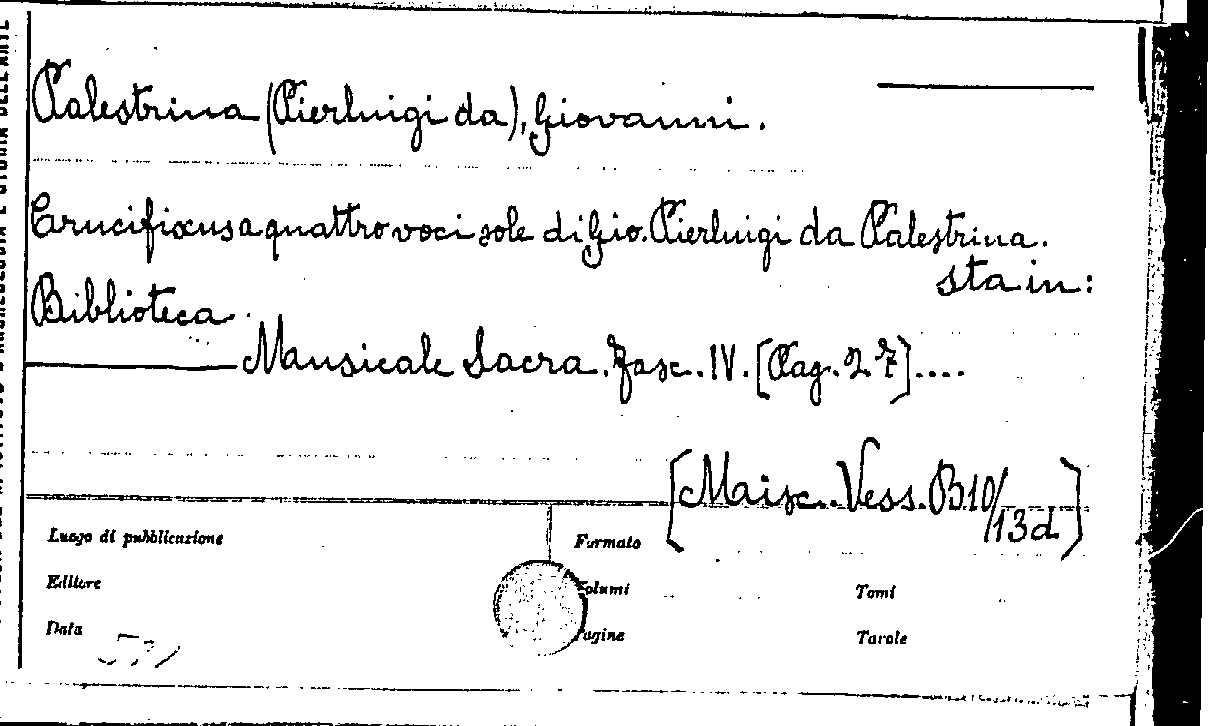 Palestrina (Pierluigi da), Giovanni.
Crucifixus a quattro voci sole di Gio. Pierluigi da Palestrina.
sta in:
Biblioteca
Mausicale Sacra. Fasc. IV. [Pag. 27]....
[Maisc. Vess. B10/13d]
Luogo di pubblicazione
Formato
Editore
Volumi
Tomi
Data
Pagine
Tavole